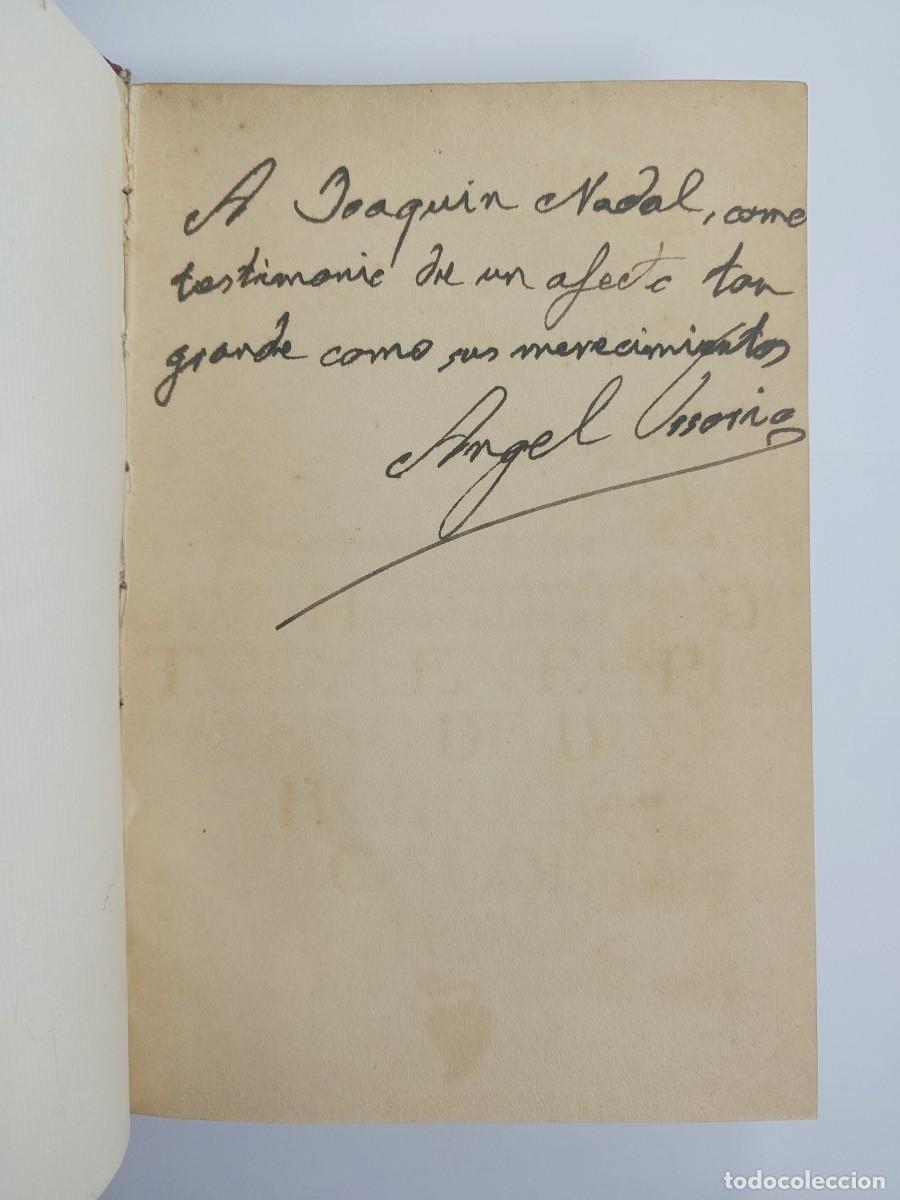 A Joaquin Nadal, como
testimonio de un afecto tan
grande como sus merecimientos
Angel Ossorio
todocoleccion